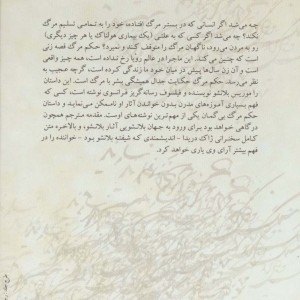 چه می‌شد اگر انسانی که در بستر مرگ افتاده، خود را به تمامی تسلیم مرگ
بکند؟ چه می‌شد اگر کسی که به علتی (یک بیماری هولناک یا هر چیز دیگری)
رو به مردن می‌رود، ناگهان مرگ را متوقف کند و نمیرد؟ حکم مرگ قصه زنی
است که چنین می‌کند. این ماجرا در عالم رؤیا رخ نداده است، همه چیز واقعی
است و آن زن سال‌ها پیش در میان خود ما زندگی کرده است. گرچه عجیب به
نظر می‌رسد. حکم مرگ حکایت جدال همیشگی بشر با مرگ است. این داستان
را موریس بلانشو نویسنده و فیلسوف رسانه‌گریز فرانسوی نوشته است، کسی که
فهم بسیاری آموزه‌های مدرن بدون خواندن آثار او ناممکن می‌نماید و داستان
حکم مرگ بی‌گمان یکی از مهم‌ترین نوشته‌های اوست. مقدمه مترجم همچون
درگاهی خواهد بود برای ورود به جهان بلانشویی آثار بلانشو، و بالاخره متن
کامل سخنرانی ژاک دریدا - اندیشمندی که شیفتهٔ بلانشو بود - خواننده را در
فهم بیشتر آرای وی یاری خواهد کرد.